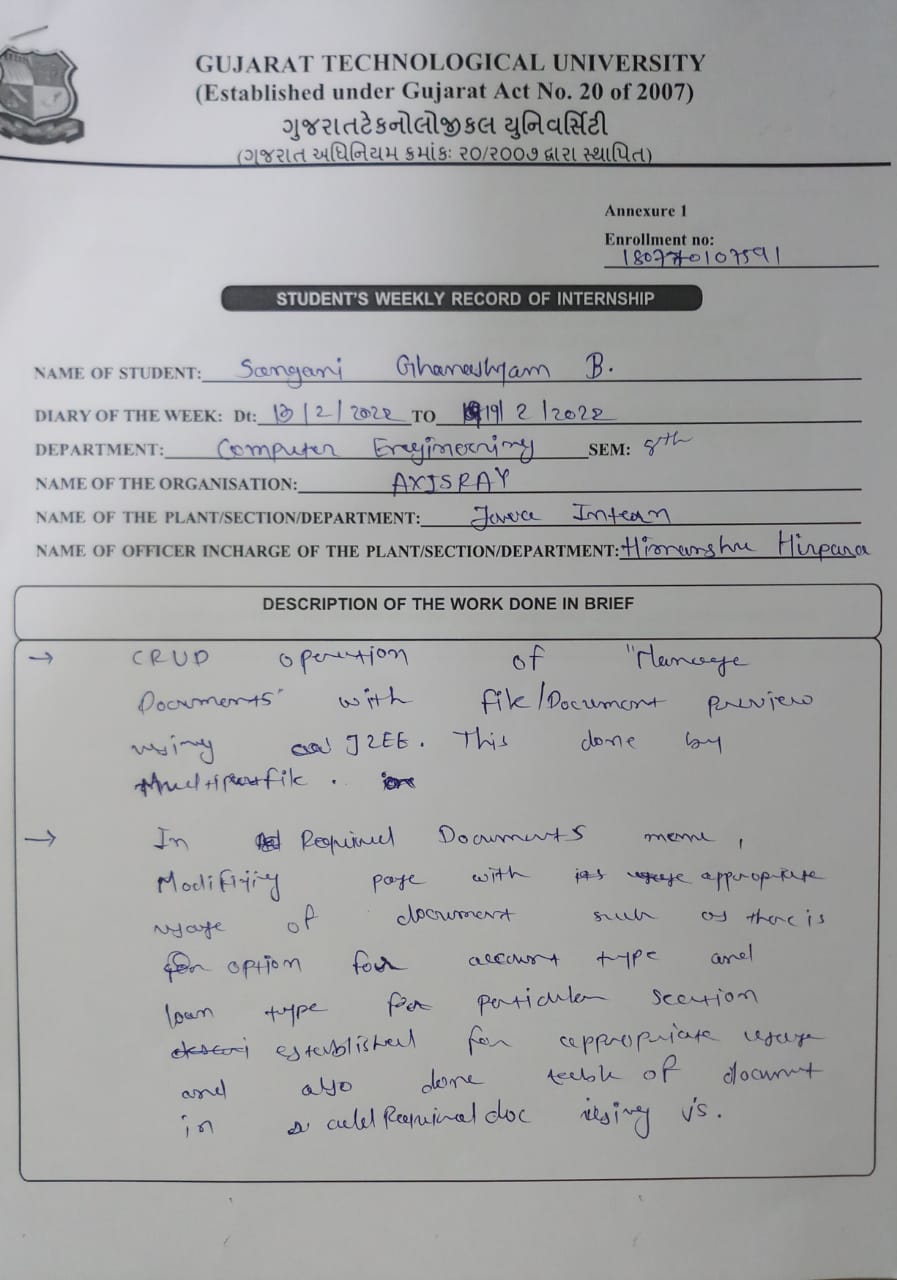 GUJARAT TECHNOLOGICAL UNIVERSITY
(Established under Gujarat Act No. 20 of 2007)
ગુજરાતટેકનોલોજીકલ યુનિવર્સિટી
(ગુજરાત અધિનિયમ ક્રમાંકઃ ૨૦/૨૦૦૭ દ્વારા સ્થાપિત)
Annexure 1
Enrollment no:
180770107591
STUDENT'S WEEKLY RECORD OF INTERNSHIP
NAME OF STUDENT: Sangani Ghanashyam B.
DIARY OF THE WEEK: Dt: 13/2/2022 TO 19/2/2022
DEPARTMENT: Computer Engineering SEM: 8th
NAME OF THE ORGANISATION: AXISRAY
NAME OF THE PLANT/SECTION/DEPARTMENT: Java Intern
NAME OF OFFICER INCHARGE OF THE PLANT/SECTION/DEPARTMENT: Himanshu Hirpara
DESCRIPTION OF THE WORK DONE IN BRIEF
→ CRUD operation of "Manage
Documents" with file/Document preview
using J2EE. This done by
Multipartfile.
→ In Required Documents menu,
Modifiying page with appropriate
usage of document such as there is
option for account type and
loan type for particular section
established for appropriate usage
and also done table of document
in addRequired doc using